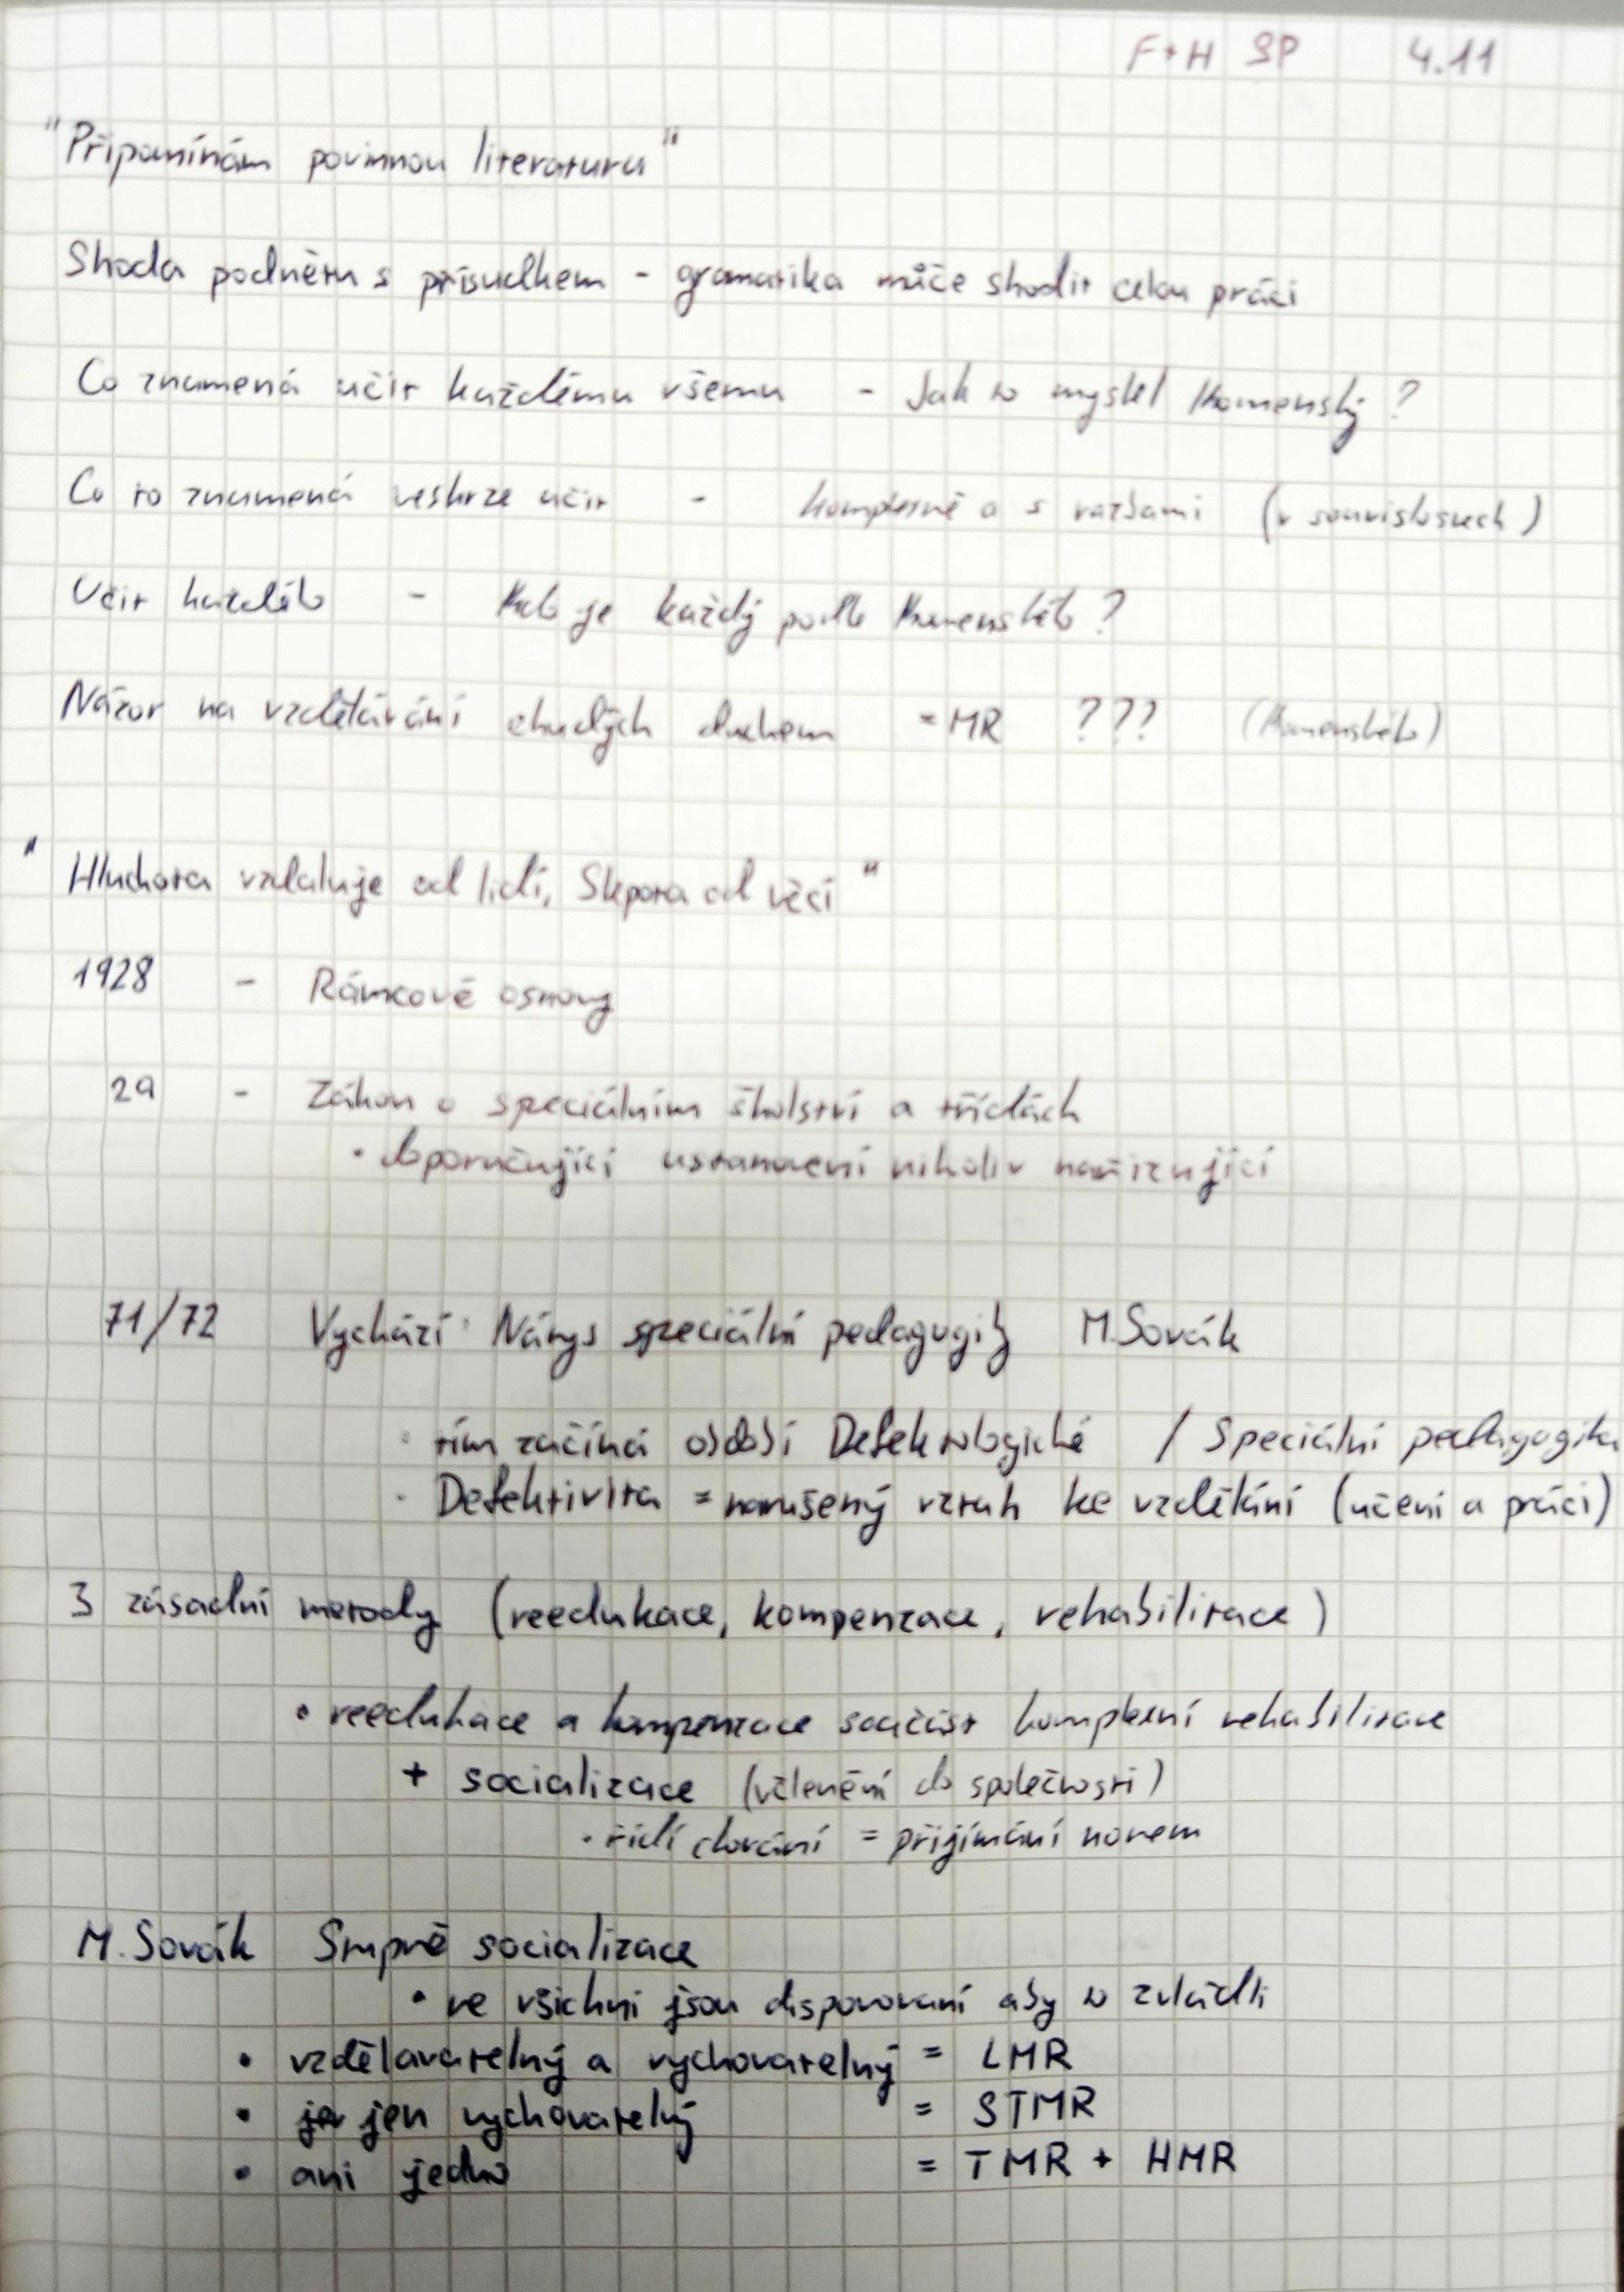 F+H SP 4.11
"Připomínám povinnou literaturu"
Shoda podnětu s přísudkem - gramatika může shodit celou práci
Co znamená učit každému všemu - Jak to myslel Komenský ?
Co to znamená veskrze učit - komplexně a s vazbami (v souvislostech)
Učit každého - Kdo je každý podle Komenského ?
Názor na vzdělávání chudých duchem = MR ??? (Komenského)
"Hluchota vzdaluje od lidí, Slepota od věcí"
1928 - Rámcové osnovy
29 - Zákon o speciálním školství a třídách
• doporučující ustanovení nikoliv nařizující
71/72 Vychází: Nárys speciální pedagogiky M.Sovák
• tím začíná období Defektologické / Speciální pedagogika
• Defektivita = narušený vztah ke vzdělání (učení a práci)
3 zásadní metody (reedukace, kompenzace, rehabilitace)
• reedukace a kompenzace součást komplexní rehabilitace
+ socializace (včlenění do společnosti)
• řídí chování = přijímání norem
M.Sovák Stupně socializace
• ne všichni jsou disponovaní aby to zvládli
• vzdělavatelný a vychovatelný = LMR
• jen vychovatelný = STMR
• ani jedno = TMR + HMR